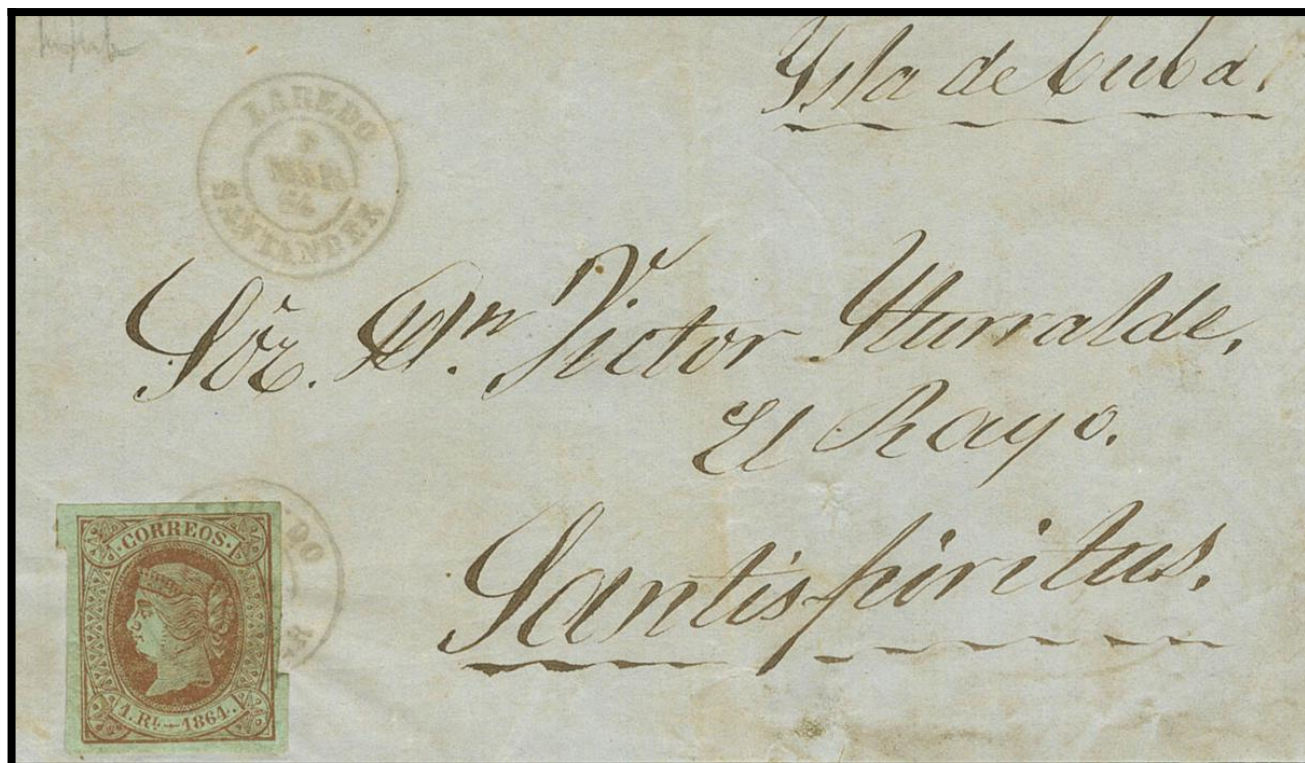 Ysla de Cuba.
LAREDO
SANTANDER
Sör. Dn. Victor Yturralde,
El Rayo.
Santispiritus.
DO
R
·CORREOS·
1. RL.—1864.